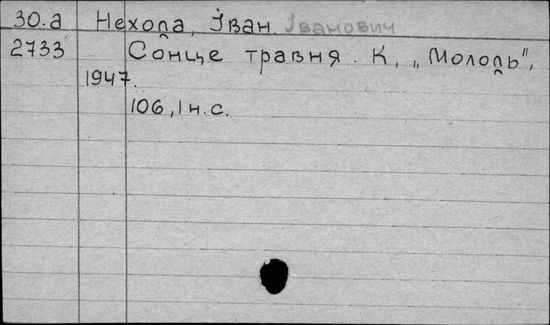 30.а Нехода, Іван Іванович
2733 Сонце травня. К, „Молодь",
1947.
106, 1 н.с.